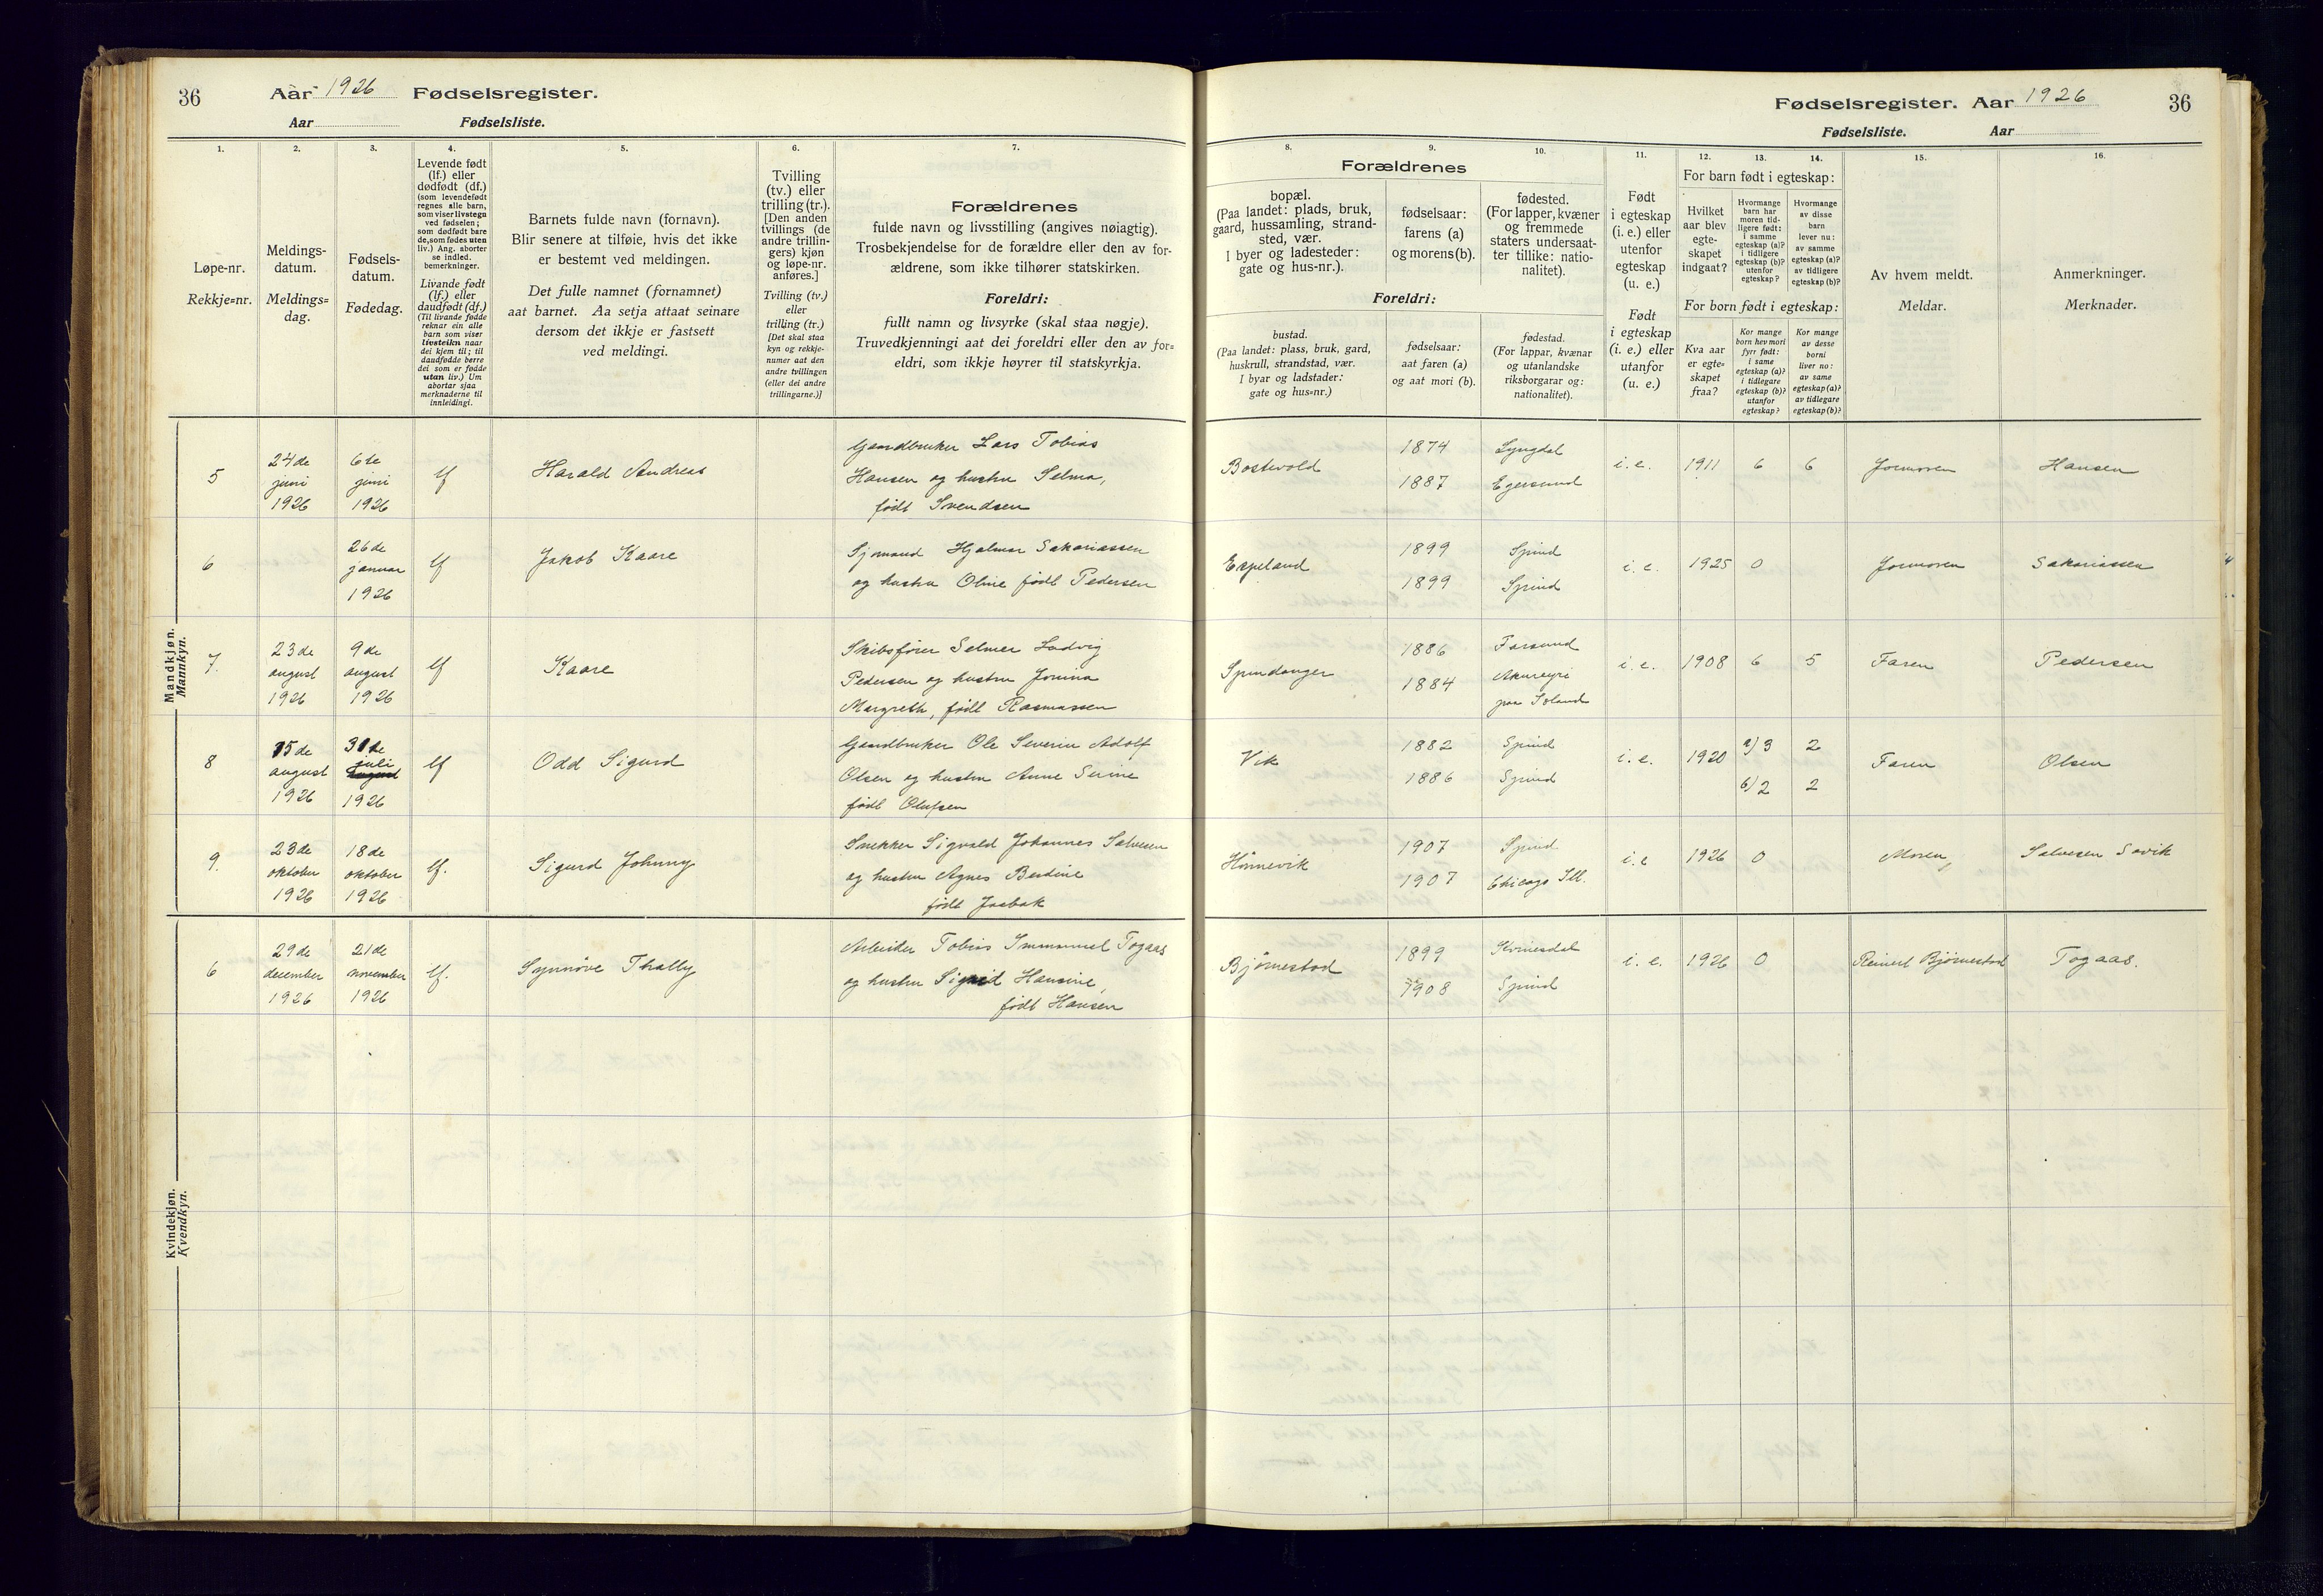 36
Aar 1926 Fødselsregister.
Aar Fødselsliste.
1.
Løpe-nr.
Rekkje=nr.
2.
Meldings-
datum.
Meldings=
dag.
3.
Fødsels-
datum.
Fødedag.
4.
Levende født
(lf.) eller
dødfødt (df.)
(som levendefødt
regnes alle barn,
som viser livstegn
ved fødselen;
som dødfødt bare
de, som fødes uten
liv.) Ang. aborter
se indled.
bemerkninger.
Livande født
(lf.) eller
daudfødt (df.)
(Til livande fødde
reknar ein alle
barn som viser
livsteikn naar
dei kjem til; til
daudfødde berre
dei som er fødde
utan liv.) Um
abortar sjaa
merknaderne til
innleidingi.
5.
Barnets fulde navn (fornavn).
Blir senere at tilføie, hvis det ikke
er bestemt ved meldingen.
Det fulle namnet (fornamnet)
aat barnet. Aa setja attaat seinare
dersom det ikkje er fastsett
ved meldingi.
6.
Tvilling
(tv.) eller
trilling (tr.).
[Den anden
tvillings (de
andre trillin-
gers) kjøn
og løpe-nr.
anføres.]
Tvilling (tv.)
eller
trilling (tr.)
[Det skal staa
kyn og rekkje-
numer aat den
andre tvillingen
(eller dei andre
trillingarne.)]
7.
Forældrenes
fulde navn og livsstilling (angives nøiagtig).
Trosbekjendelse for de forældre eller den av for-
ældrene, som ikke tilhører statskirken.
Foreldri:
fullt namn og livsyrke (skal staa nøgje).
Truvedkjenningi aat dei foreldri eller den av for=
eldri, som ikkje høyrer til statskyrkja.
Mandkjøn.
Mannkyn.
5
24de
juni
1926
6te
juni
1926
lf
Harald Andreas
Gaardbruker Lars Tobias
Hansen og hustru Selma,
født Svendsen
6
26de
januar
1926
lf
Jakob Kaare
Sjømand Hjalmar Sakariassen
og hustru Oline født Pedersen
7.
23de
august
1926
9de
august
1926
lf
Kaare
Skibsfører Selmer Ludvig
Pedersen og hustru Jonina
Margreth, født Rasmussen
8
15de
august
1926
31te
juli
august
1926
lf
Odd Sigurd
Gaardbruker Ole Severin Adolf
Olsen og hustru Anne Serine
født Olufsen
9.
23de
oktober
1926
18de
oktober
1926
lf.
Sigurd Johnny
Snekker Sigvald Johannes Salvesen
og hustru Agnes Berdine
født
Kvindekjøn.
Kvendkyn.
6
29de
december
1926
21de
november
1926
lf.
Synnöve Thalby
Arbeider Tobias Immanuel Togaas
og hustru Sigrid Hansine,
født Hansen
Fødselsregister. Aar 1926
36
Fødselsliste. Aar
8.
Forældrenes
bopæl.
(Paa landet: plads, bruk,
gaard, hussamling, strand-
sted, vær.
I byer og ladesteder:
gate og hus-nr.).
Foreldri:
bustad.
(Paa landet: plass, bruk, gard,
huskrull, strandstad, vær.
I byar og ladstader:
gate og hus=nr.)
9.
fødselsaar:
farens (a)
og morens (b).
fødselsaar:
aat faren (a)
og aat mori (b).
10.
fødested.
(For lapper, kvæner
og fremmede
staters undersaat-
ter tillike: natio-
nalitet).
fødestad.
(For lappar, kvænar
og utanlandske
riksborgarar og:
nationalitet).
11.
Født
i egteskap
(i. e.) eller
utenfor
egteskap
(u. e.)
Født
i egteskap
(i. e.) eller
utanfor
(u. e.)
12.
13.
14.
For barn født i egteskap:
Hvilket
aar blev
egte-
skapet
indgaat?
Hvormange
barn har
moren tid-
ligere født:
i samme
egteskap (a)?
i tidligere
egteskap (b)?
utenfor
egteskap?
Hvormange
av disse
barn
lever nu:
av samme
egteskap (a)?
av tidligere
egteskap (b)?
For born født i egteskap:
Kva aar
er egte=
skapet
fraa?
Kor mange
born hev mori
fyrr født:
i same
egteskap (a)?
i tidlegare
egteskap (b)?
utanfor
egteskap?
Kor mange
av desse
borni
liver no:
av same
egteskap (a)?
av tidlegare
egteskap (b)?
15.
Av hvem meldt.
Meldar.
16.
Anmerkninger.
Merknader.
Bostvold
1874
1887
Lyngdal
Egersund
i. e.
1911
6
6
Jormoren
Hansen
Espeland
1899
1899
Spind
Spind
i. e.
1925
0
Jormoren
Sakariassen
Spindanger
1886
1884
Farsund
Akureyri
paa Island
i. e.
1908
6
5
Faren
Pedersen
Vik
1882
1886
Spind
Spind
i. e.
1920
a) 3
b) 2
2
2
Faren
Olsen
Hönnevik
1907
1907
Spind
Chicago Ill.
i. e
1926
0
Moren,
Salvesen Savik
Björnestad
1899
1908
Kvinesdal
Spind
i. e.
1926
0
Reinert Björnestad
Togaas.